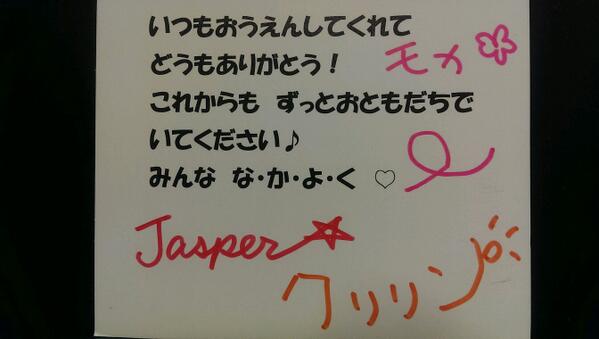 いつもおうえんしてくれて
どうもありがとう！
モカ
これからも ずっとおともだちで
いてください♪
みんな な・か・よ・く ♡
Jasper☆
クリリン